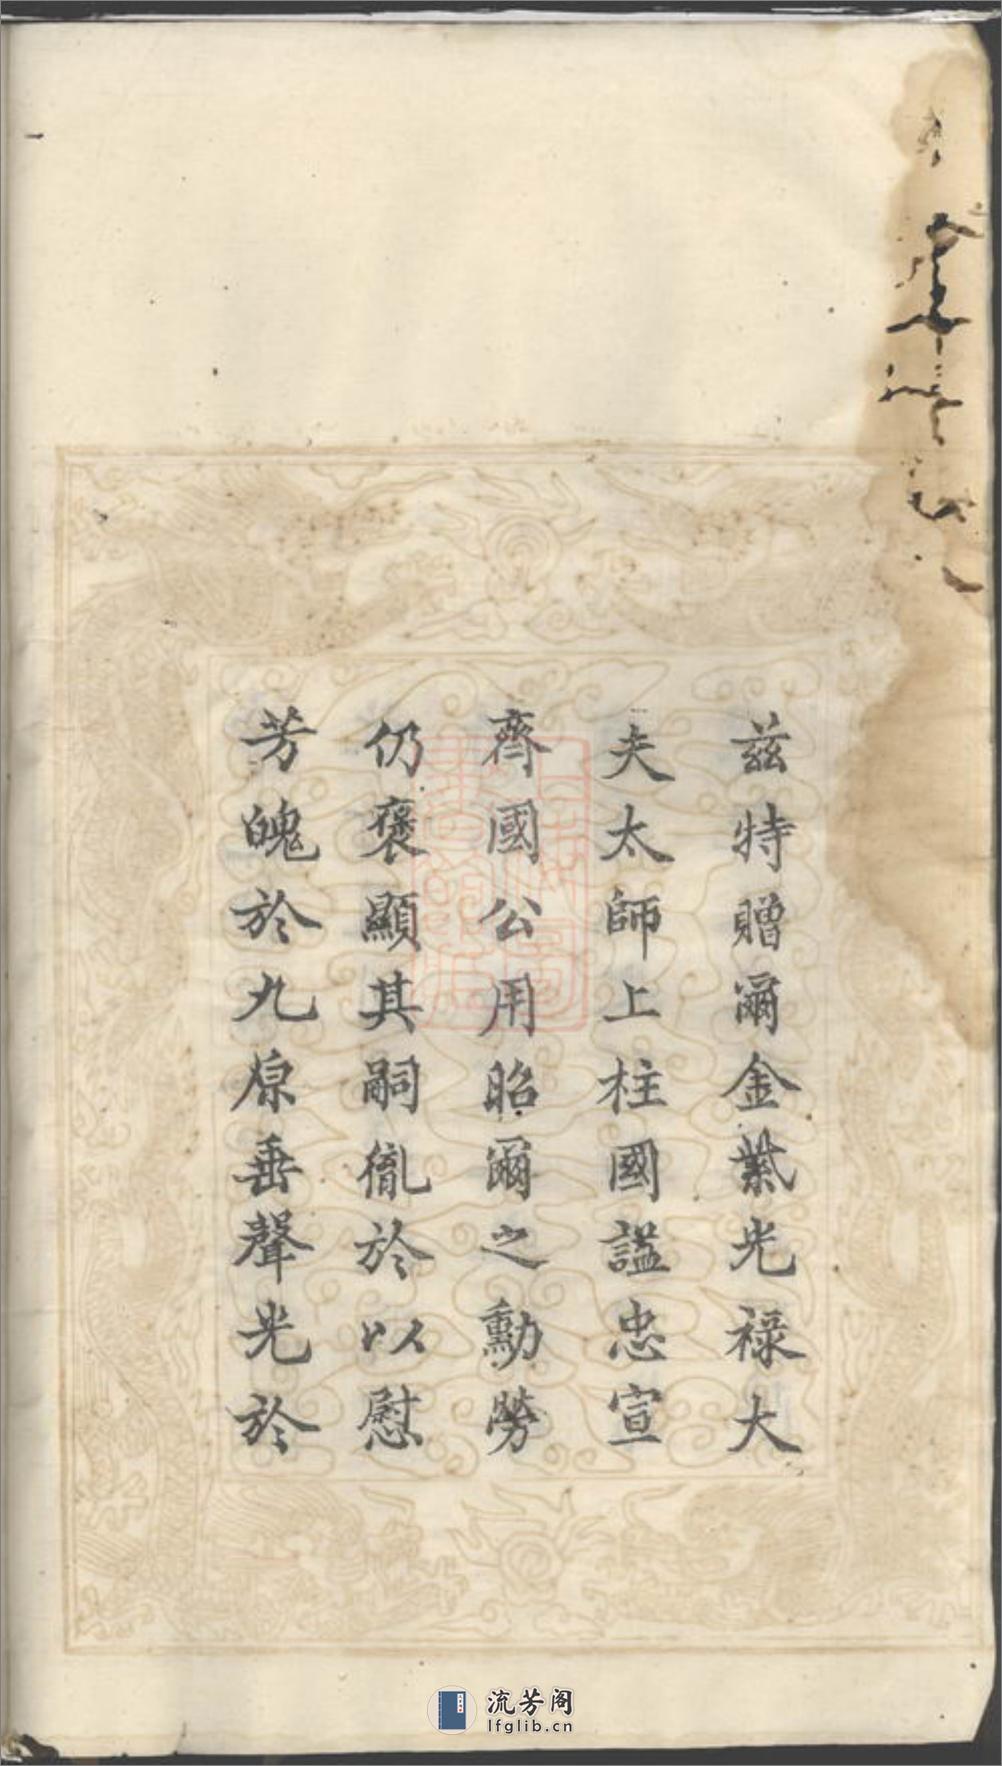 兹特贈爾金紫光禄大
夫太師上柱國謚忠宣
齊國公用昭爾之勳勞
仍褒顯其嗣胤於以慰
芳魄於九原垂聲光於
流芳阁
lfglib.cn